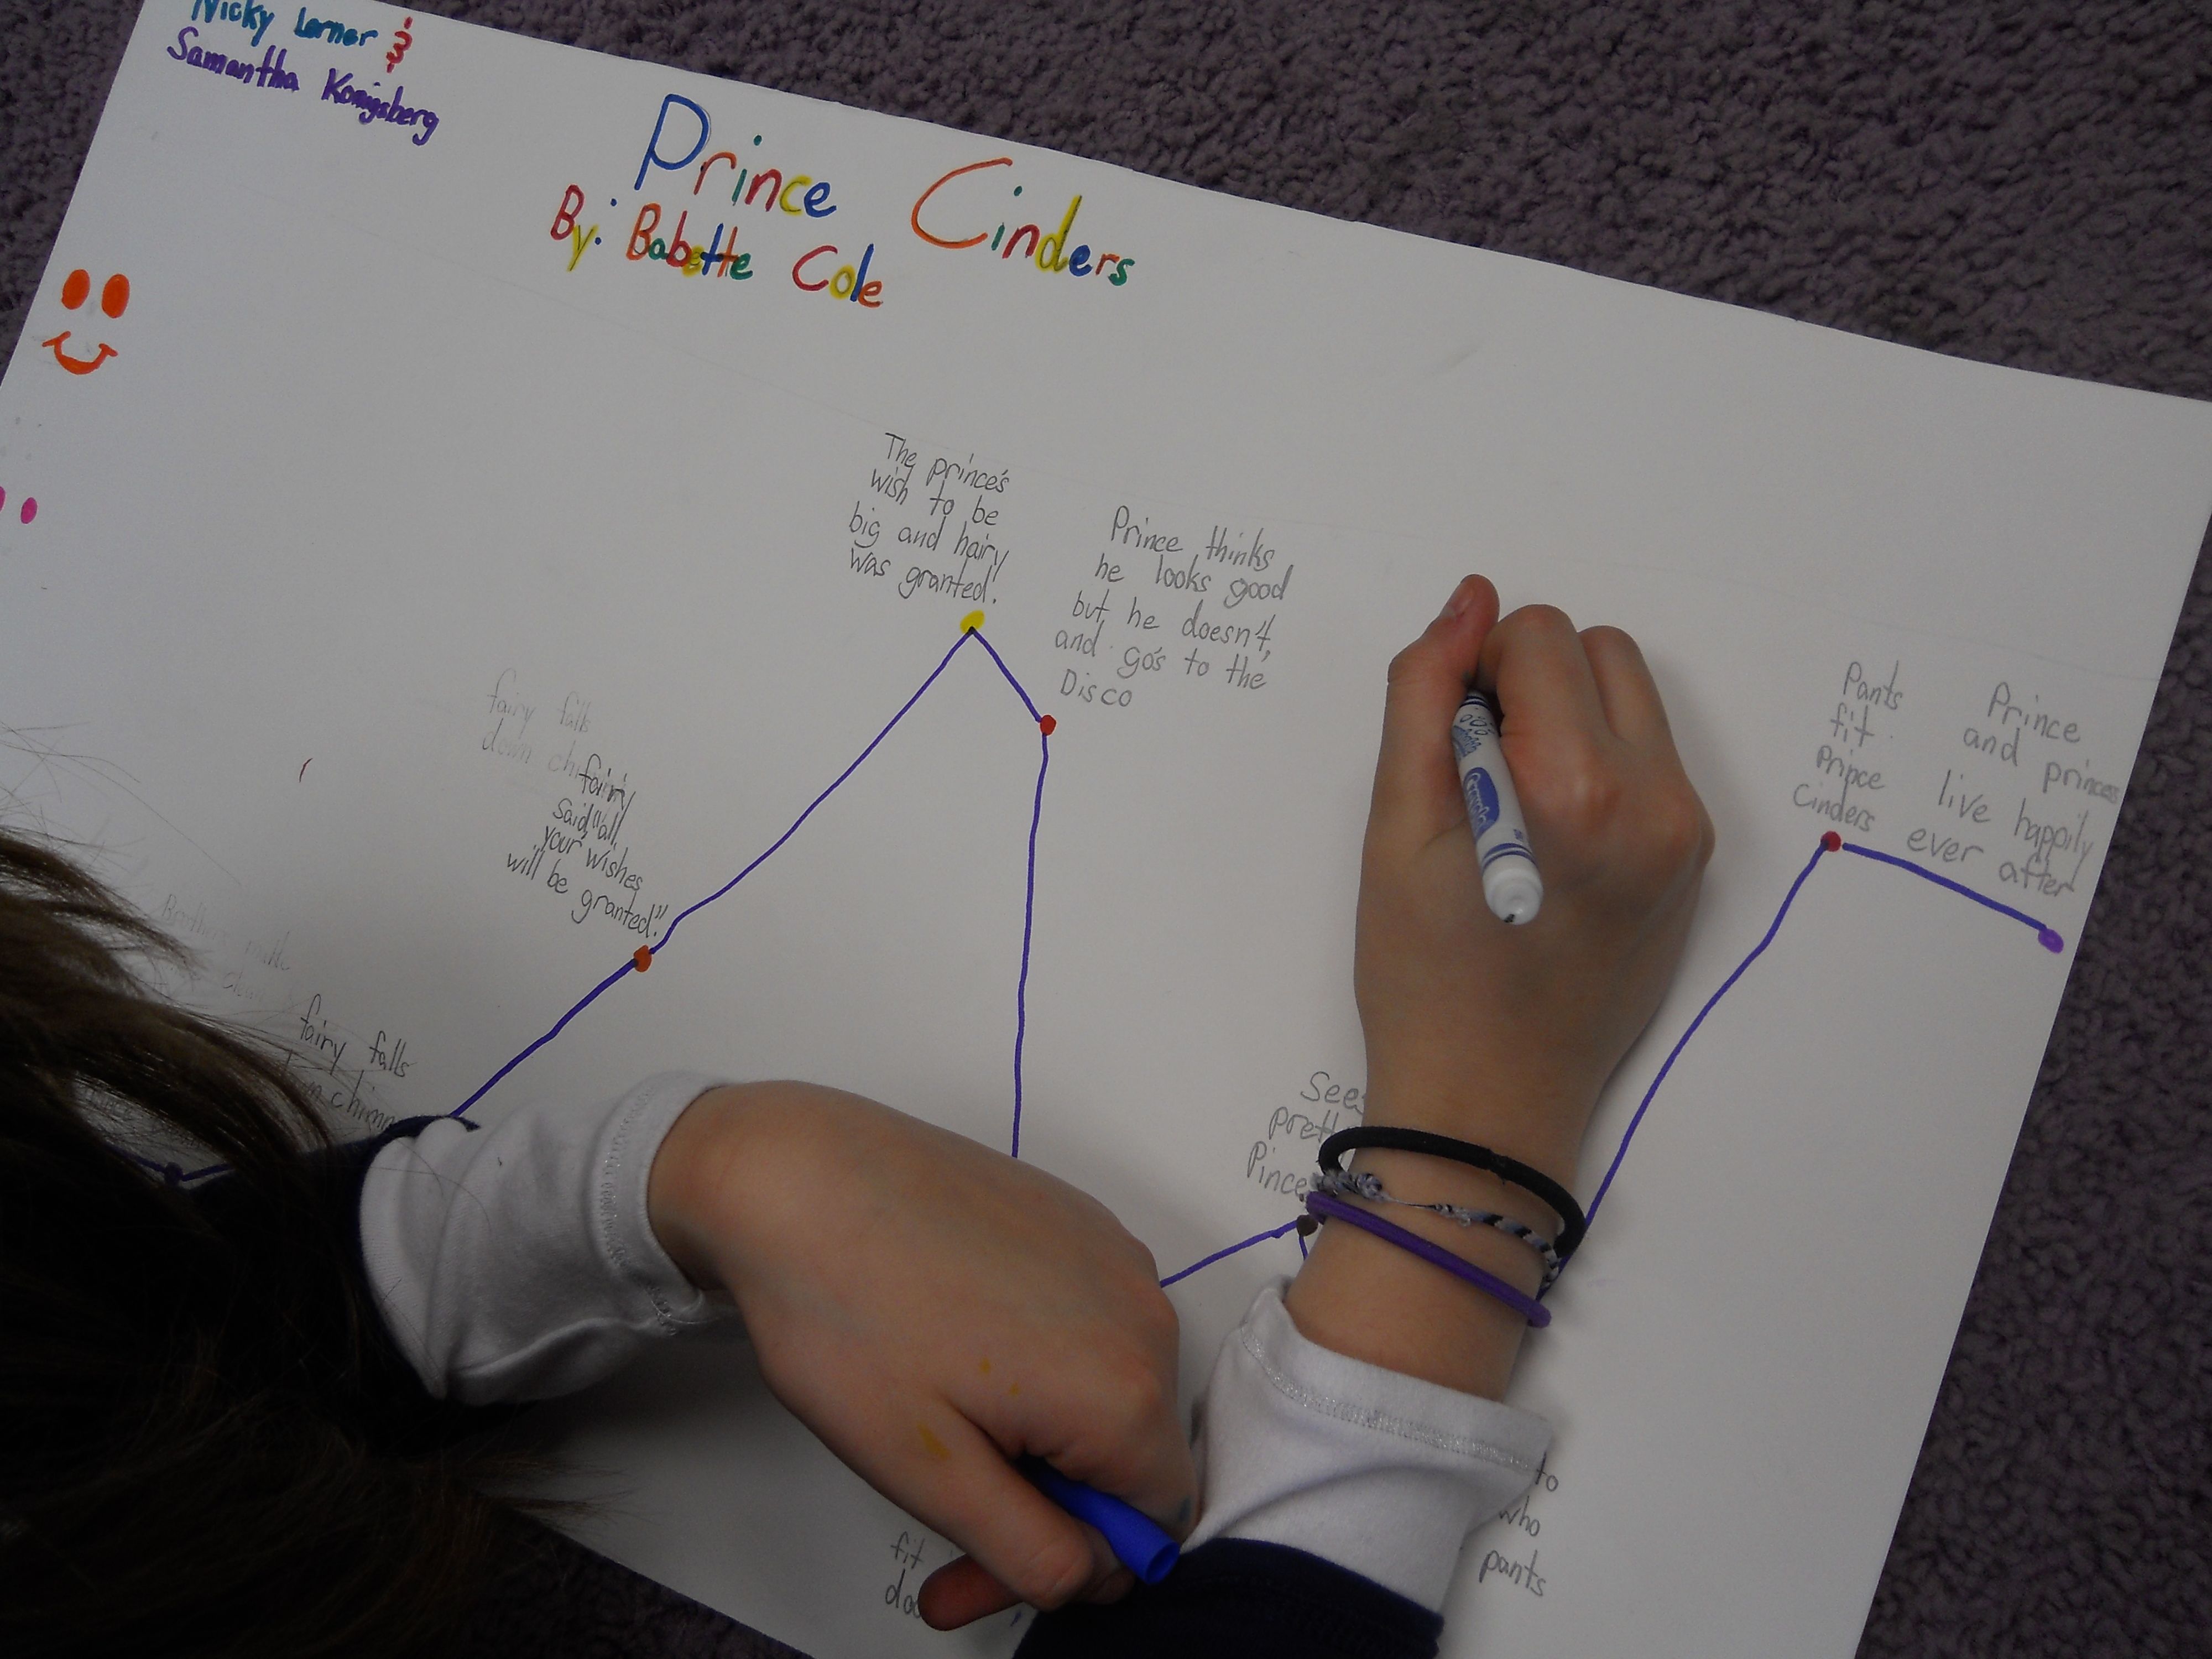 Nicky Lerner &
Samantha Konigsberg
Prince Cinders
By: Babette Cole
The prince's
wish to be
big and hairy
was granted!
Prince thinks
he looks good
but he doesn't,
and go's to the
Disco
fairy falls
down
fairy
said, "all
your wishes
will be granted"
fairy falls
Pants
fit
Prince
Cinders
Prince
and princess
live happily
ever after
Crayola
to
who
pants
fit